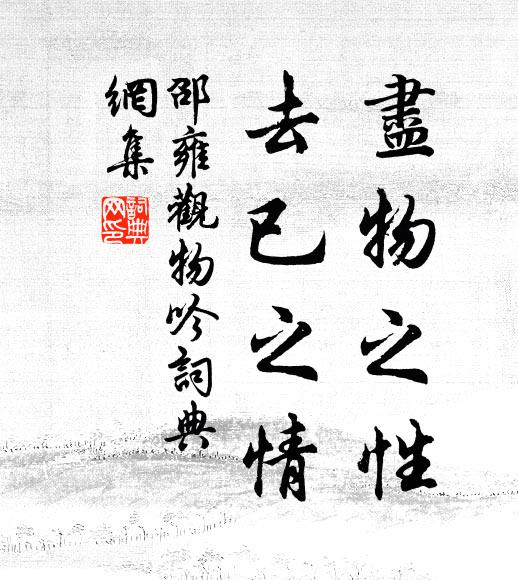 盡物之性
去已之情
邵雍觀物吟詞典
網集
詞典
网印